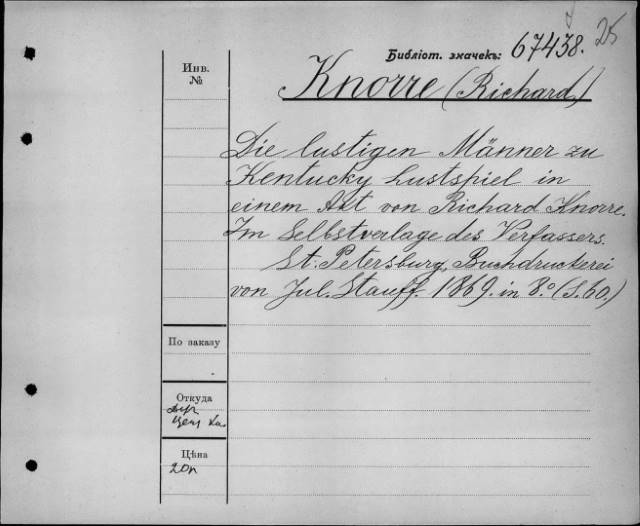 25
Библіот. значекъ: 67438.
Инв.
№
Knorre (Richard)
Die lustigen Männer zu
Kentucky Lustspiel in
einem Akt von Richard Knorre.
Im Selbstverlage des Verfassers.
St. Petersburg, Buchdruckerei
von Jul. Stauff. 1869. in 8.° (S. 60.)
По заказу
Откуда
Цѣна
20к